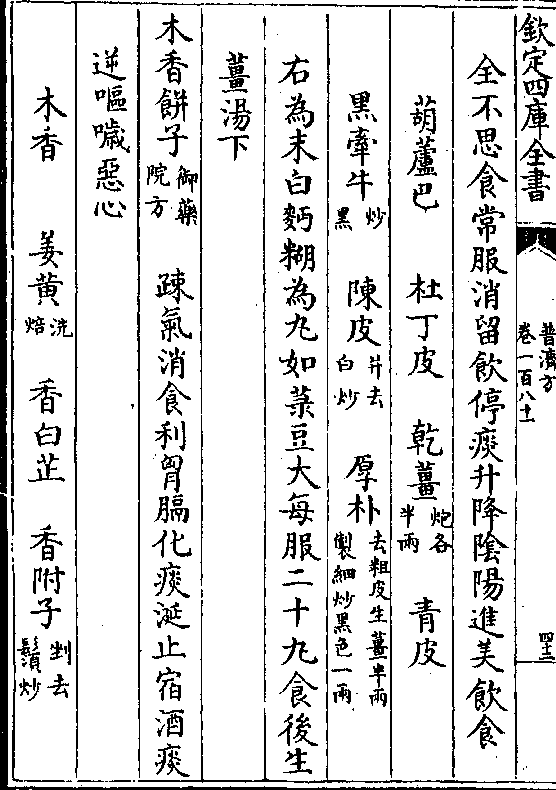 欽定四庫全書
普濟方
卷一百八十一
四十三
全不思食常服消留飲停痰升降陰陽進美飲食
葫蘆巴 杜丁皮 乾薑炮各半兩 青皮
黑牽牛炒黑 陳皮并去白炒 厚朴去粗皮生薑半兩製細炒黑色一兩
右為末白麪糊為丸如菉豆大每服二十丸食後生
薑湯下
木香餅子御藥院方 疎氣消食利胷膈化痰涎止宿酒痰
逆嘔噦惡心
木香 姜黃洗焙 香白芷 香附子剉去鬚炒